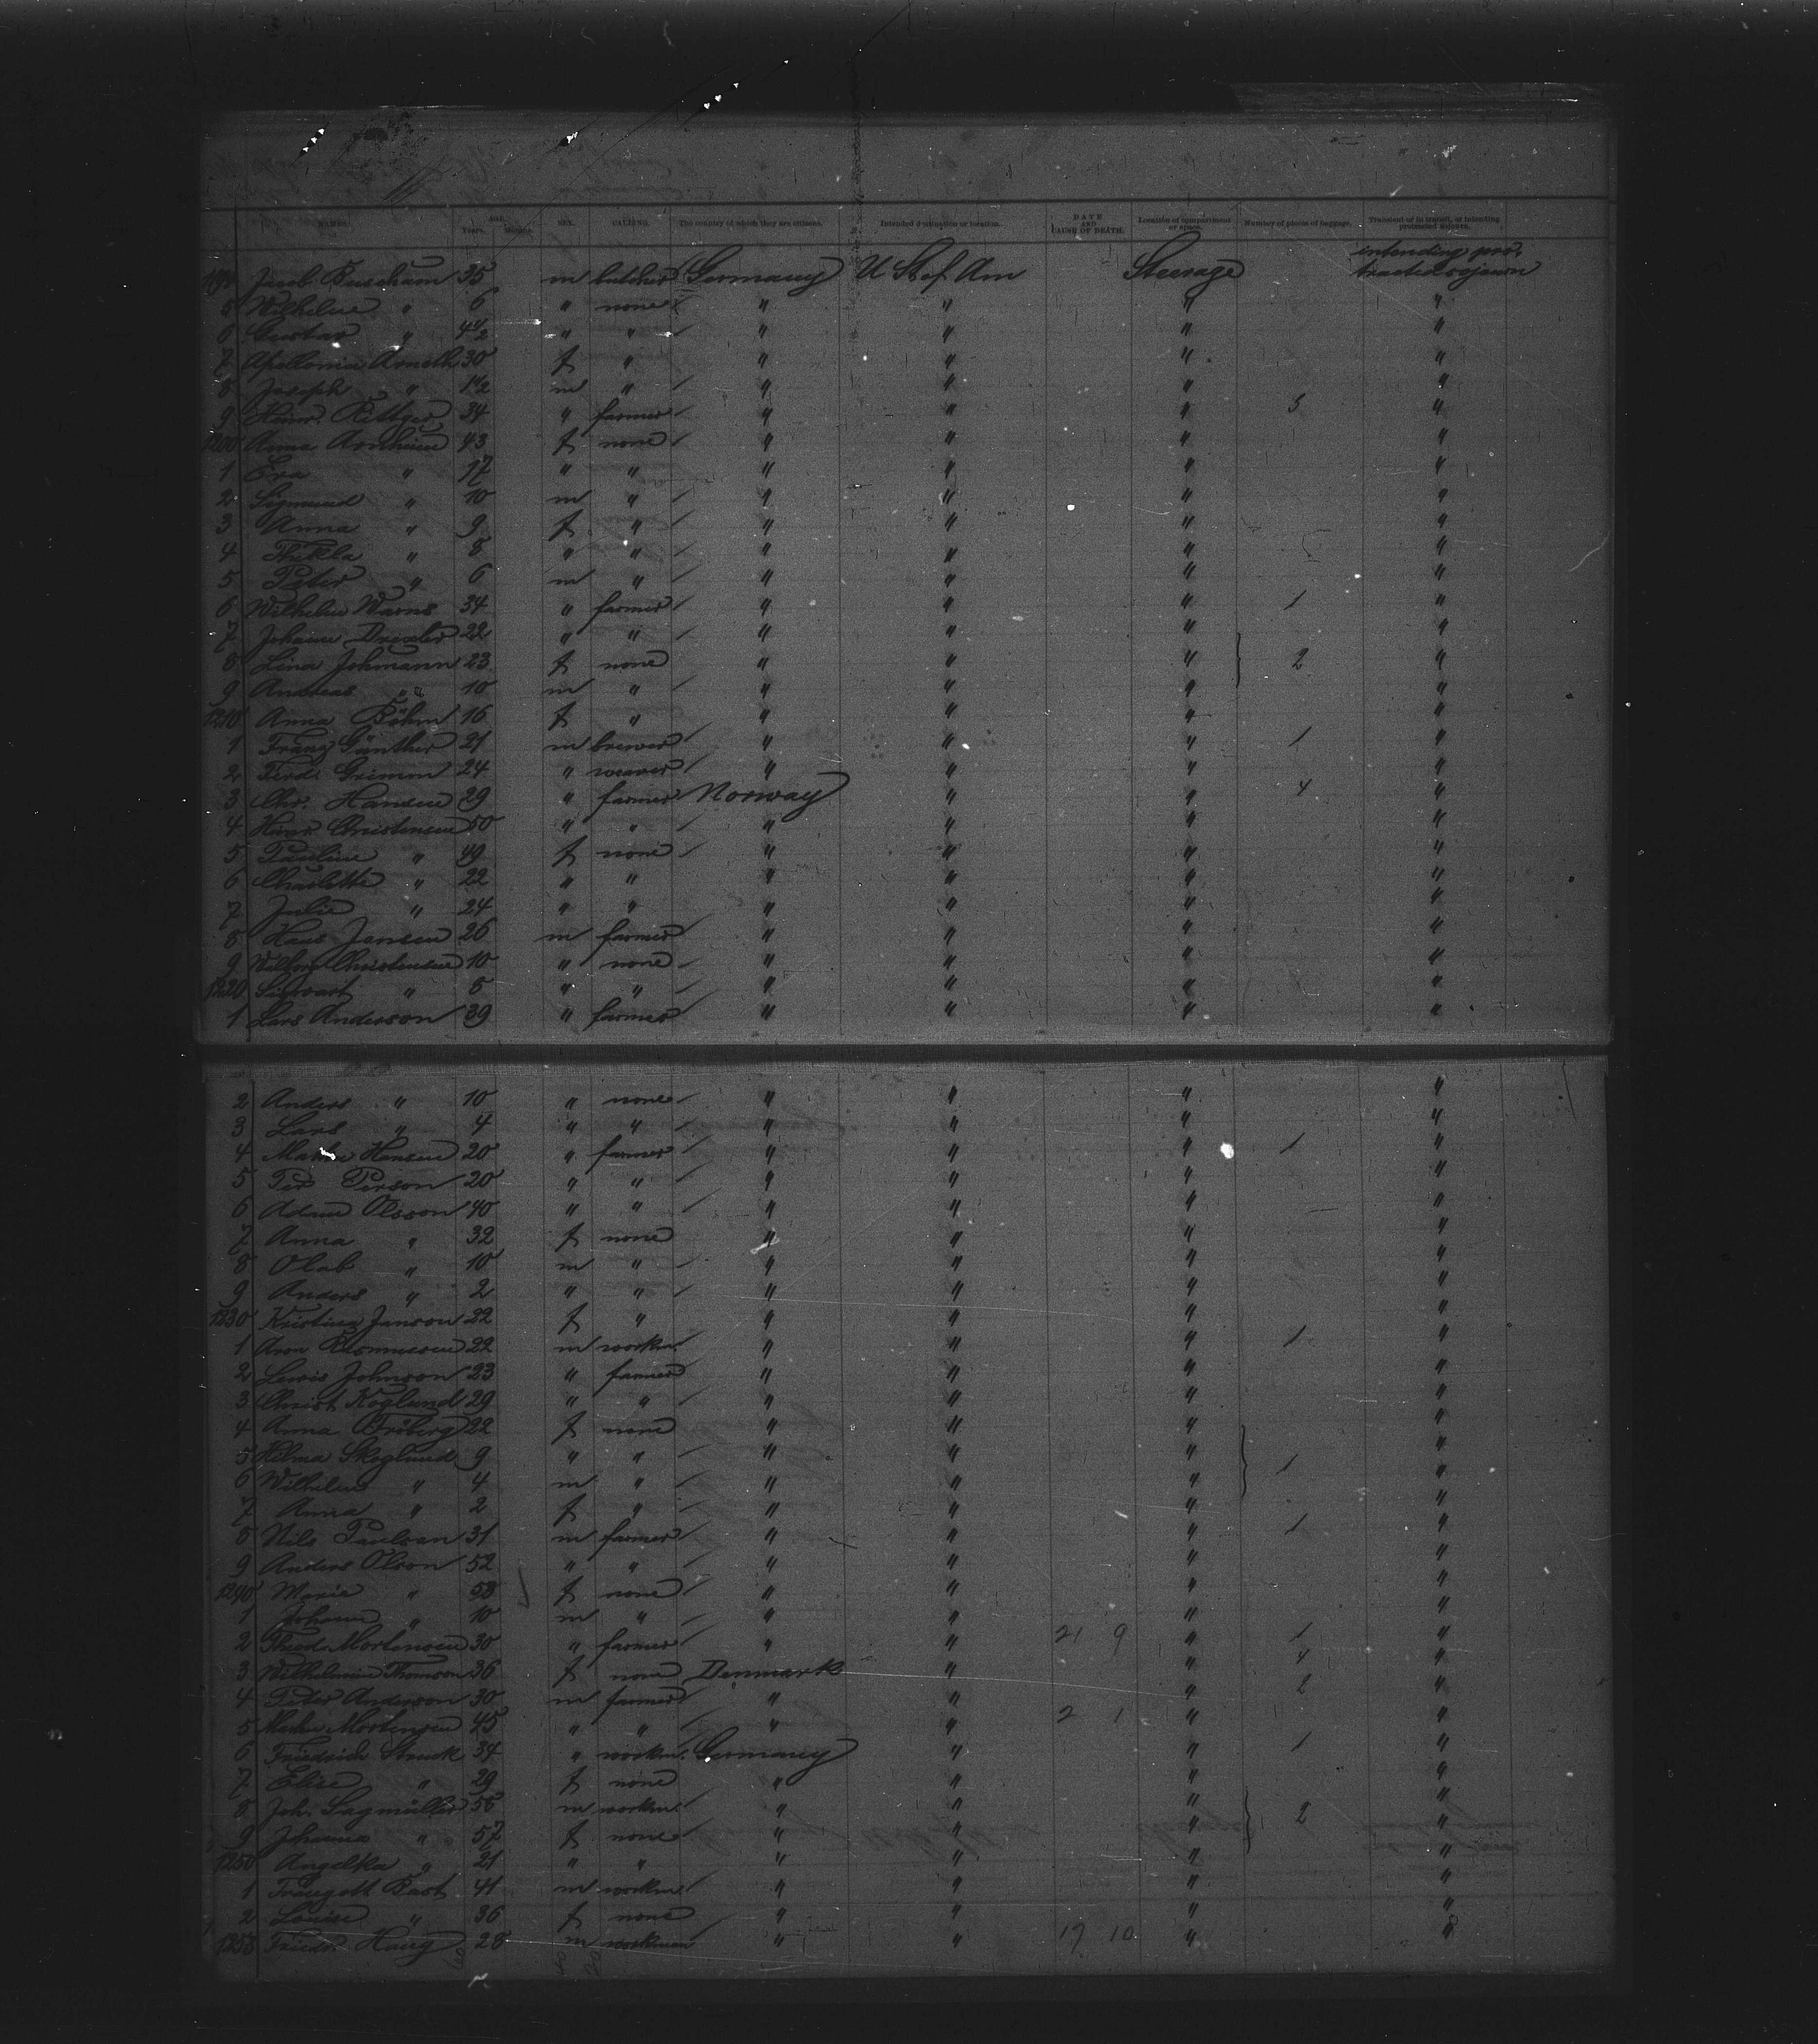 NAMES. AGE. Years. Months. SEX. CALLING. The country of which they are citizens. Intended destination or location. DATE AND CAUSE OF DEATH. Location of compartment or space. Number of pieces of baggage. Transient or in transit, or intending protracted sojourn.
1194 Jacob 35 m butcher Germany U St of Am Steerage intending protracted sojourn
5 Wilhelm " 6 " none " " " "
6 Gustav " 4½ " " " " " "
7 Apollonia 30 f " " " " "
8 Joseph " 1½ m " " " " "
9 Heinr. Rittger 34 " farmer " " " 3 "
1200 Anna Arnheim 43 f none " " " "
1 Eva " 17 " " " " " "
2 Sigmund " 10 m " " " " "
3 Anna " 9 f " " " " "
4 Thekla " 8 " " " " " "
5 Peter " 6 m " " " " "
6 Wilhelm Warns 34 " farmer " " " 1 "
7 Johann Drexler 22 " " " " " "
8 Lina Johmann 23 f none " " " 2 "
9 Andreas " 10 m " " " " "
1210 Anna Böhm 16 f " " " " "
1 Franz Günther 21 m brewer " " " 1 "
2 Ferd. Grimm 24 " weaver " " " "
3 Chr. Hansen 29 " farmer Norway " " 4 "
4 Christensen 50 " " " " " "
5 Pauline " 49 f none " " " "
6 Charlotte " 22 " " " " " "
7 Julie " 24 " " " " " "
8 Hans Jensen 26 m farmer " " " "
9 Christensen 10 " none " " " "
1220 Sigwart " 5 " " " " " "
1 Lars Anderson 39 " farmer " " " "
2 Anders " 10 " none " " " "
3 Lars " 4 " " " " " "
4 Hansen 20 " farmer " " " 1 "
5 Per Person 20 " " " " " "
6 Adam Olsson 40 " " " " " "
7 Anna " 32 f none " " " "
8 Olab " 10 m " " " " "
9 Anders " 2 " " " " " "
1230 Kristina Janson 22 f " " " " "
1 Aron Rasmussen 22 m workm. " " " 1 "
2 Lewis Johnson 23 " farmer " " " "
3 Christ Koglund 29 " " " " " "
4 Anna Fröberg 22 f none " " " "
5 Hilma Skoglund 9 " " " " " 1 "
6 Wilhelm " 4 m " " " " "
7 Anna " 2 f " " " " "
8 Nils Paulsen 31 m farmer " " " 1 "
9 Anders Olson 52 " " " " " "
1240 Marie " 58 f none " " " "
1 Johann " 10 m " " " " "
2 Theod. Mortensen 30 " farmer " " 21 9 " 1 "
3 Wilhelmine Thomsen 36 f none Denmark " " 4 "
4 Peter Anderson 30 m farmer " " " 2 "
5 Mortensen 45 " " " " 2 1 " "
6 Friedrich Struck 34 " workm. Germany " " 1 "
7 Elise " 29 f none " " " "
8 Joh. Sagmüller 56 m workm. " " " 2 "
9 Johanna " 57 f none " " " "
1250 Angelka " 21 " " " " " "
1 Traugott Bast 41 m workm. " " " "
2 Louise " 36 f none " " " "
1253 Friedr. Haug 28 m workman " " 17 10 " "